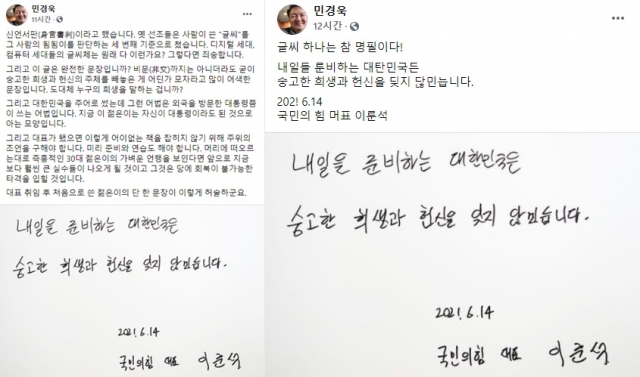 민경욱
11시간
신언서판(身言書判)이라고 했습니다. 옛 선조들은 사람이 쓴 "글씨"를
그 사람의 됨됨이를 판단하는 세 번째 기준으로 쳤습니다. 디지털 세대,
컴퓨터 세대들의 글씨체는 원래 다 이런가요? 그렇다면 죄송합니다.
그리고 이 글은 완전한 문장입니까? 비문(非文)까지는 아니더라도 굳이
숭고한 희생과 헌신의 주체를 빼놓은 게 어딘가 모자라고 많이 어색한
문장입니다. 도대체 누구의 희생을 말하는 겁니까?
그리고 대한민국을 주어로 썼는데 그런 어법은 외국을 방문한 대통령쯤
이 쓰는 어법입니다. 지금 이 젊은이는 자신이 대통령이라도 된 것으로
아는 모양입니다.
그리고 대표가 됐으면 이렇게 어이없는 책을 잡히지 않기 위해 주위의
조언을 구해야 합니다. 미리 준비와 연습도 해야 합니다. 머리에 떠오르
는대로 즉흥적인 30대 젊은이의 가벼운 언행을 보인다면 앞으로 지금
보다 훨씬 큰 실수들이 나오게 될 것이고 그것은 당에 회복이 불가능한
타격을 입힐 것입니다.
대표 취임 후 처음으로 쓴 젊은이의 단 한 문장이 이렇게 허술하군요.
내일을 준비하는 대한민국은
숭고한 희생과 헌신을 잊지 않민습니다.
2021. 6.14
국민의힘 대표 이준석
민경욱
12시간
글씨 하나는 참 명필이다!
내일를 룬비하는 대탄민곳든
숭고한 희생과 헌신을 잊지 많민습니다.
2021 6.14
국민의 힘 머표 이룬석
내일을 준비하는 대한민국은
숭고한 희생과 헌신을 잊지 않민습니다.
2021. 6.14
국민의힘 대표 이준석